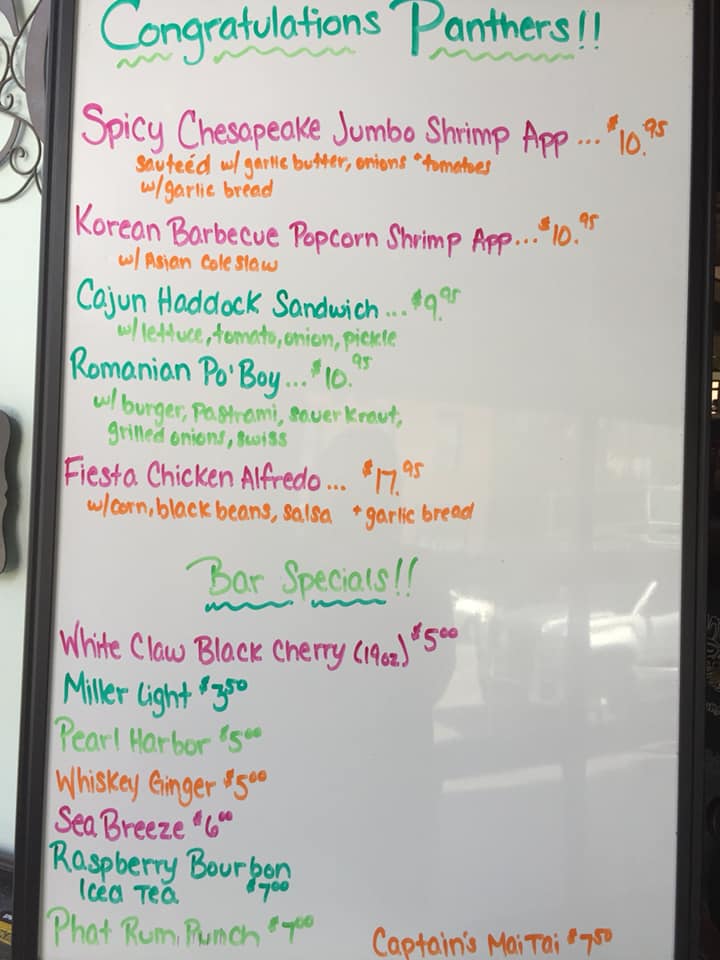 Congratulations Panthers!!
Spicy Chesapeake Jumbo Shrimp App ... $10.95
sauteéd w/ garlic butter, onions + tomatoes
w/garlic bread
Korean Barbecue Popcorn Shrimp App... $10.95
w/ Asian Cole Slaw
Cajun Haddock Sandwich ... $9.95
w/lettuce, tomato, onion, pickle
Romanian Po'Boy ... $10.95
w/ burger, pastrami, sauerkraut,
grilled onions, swiss
Fiesta Chicken Alfredo ... $17.95
w/corn, black beans, salsa + garlic bread
Bar Specials!!
White Claw Black Cherry (19oz.) $5.00
Miller Light $3.50
Pearl Harbor $5.00
Whiskey Ginger $5.00
Sea Breeze $6.00
Raspberry Bourbon
Iced Tea $7.00
Phat Rum Punch $7.00
Captain's Mai Tai $7.50